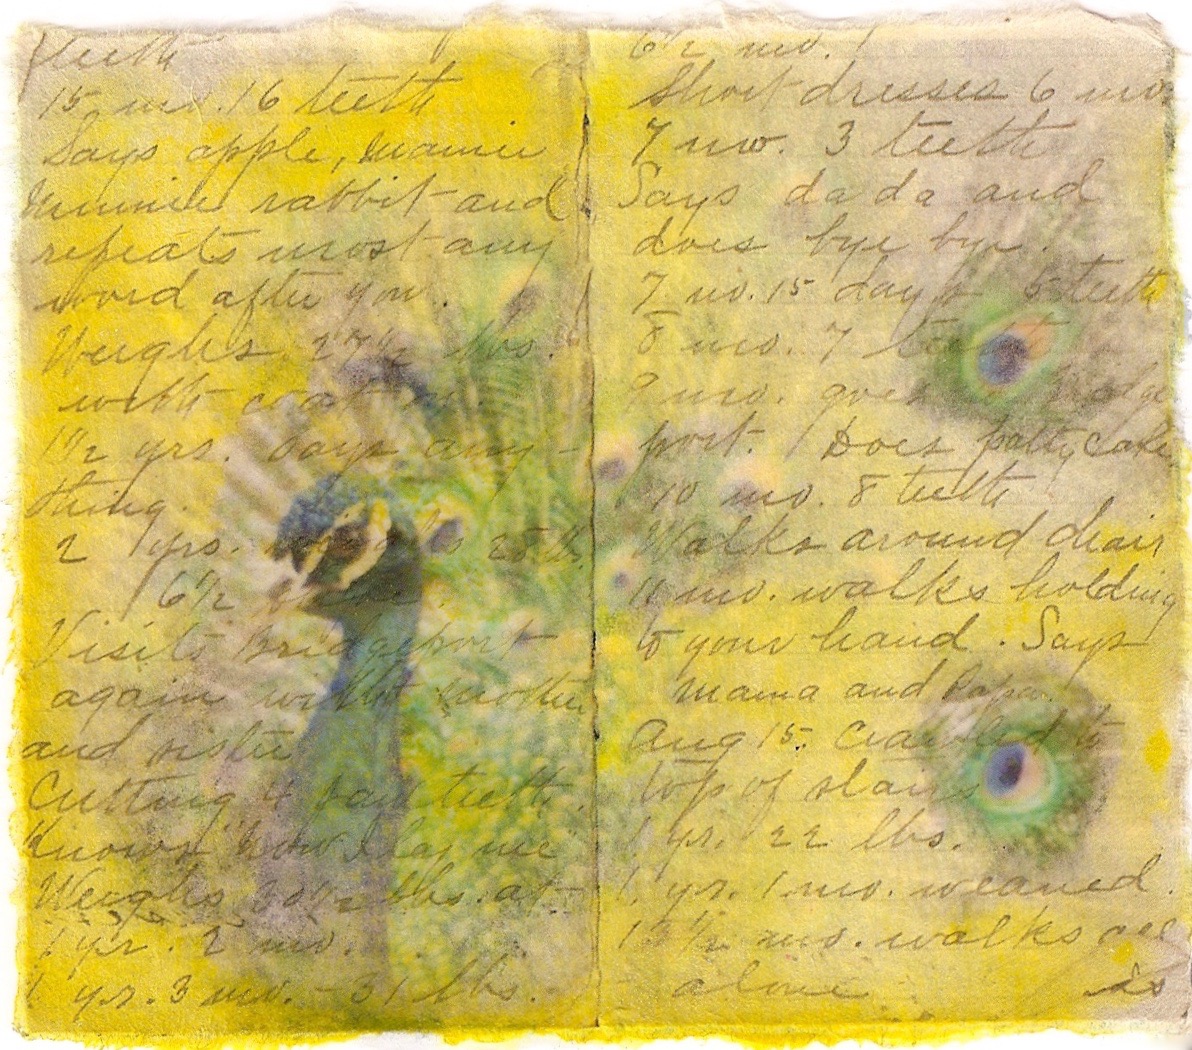 teeth
15 mo. 16 teeth
Says apple, mamie
Minnie rabbit and
repeats most any
word after you.
Weighs 27½ lbs.
with coat on.
1½ yrs. Says any-
thing.
2 yrs. 28 lbs.
6½
Visits Bridgeport
again with mother
and sister
Cutting 4 teeth.
Knows "Now I lay me"
Weighs 30½ lbs. at
1 yr. 2 mo.
1 yr. 3 mo. - 31 lbs.
6½ mo.
Short dresses 6 mo.
7 mo. 3 teeth
Says da da and
does bye bye.
7 mo. 15 days 5 teeth
8 mo. 7 teeth
9 mo. goes
port. Does patty cake
10 mo. 8 teeth
Walks around chair
11 mo. walks holding
to your hand. Says
mama and Papa.
Aug 15. Crawled to
top of stairs
1 yr. 22 lbs.
1 yr. 1 mo. weaned.
13½ mo. walks all
alone is